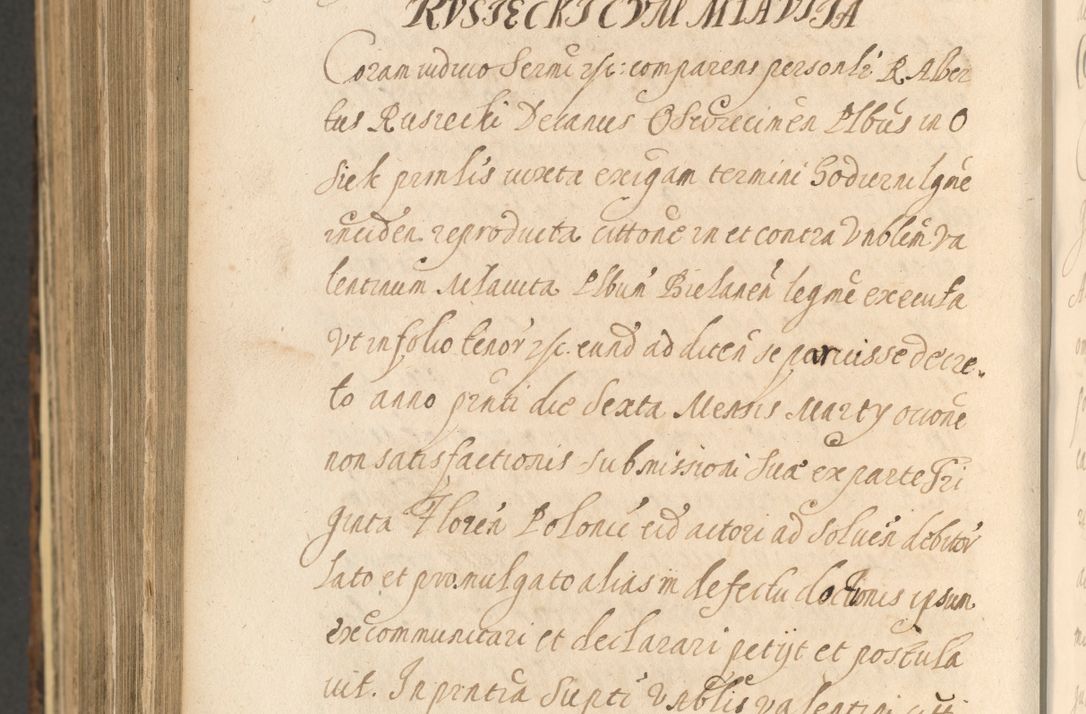 RVSIECKI CVM MIAVITA
Coram iudicio Sermi etc: comparens personlr R Alber
tus Rusiecki Decanus Osvvecimen Plbūs in O
siek prmlis iuxta exigam termini hodierni lgme
inciden. reproducta cittone in et contra Vnblem Va
lentinum Mlavita Plbum Bielanen legme executa
Vt in folio tenor etc. eund ad dicen se paruisse decre
to anno prnti die Sexta Mensis Marty occone
non satisfactionis submissioni suæ ex parte Tri
ginta Floren Polonic eid actori ad soluen debitor
lato et promulgato alias in defectu doctionis ipsum
excommunicari et declarari petijt et postula
uit. In prntia supti Vnblis Valentini citti